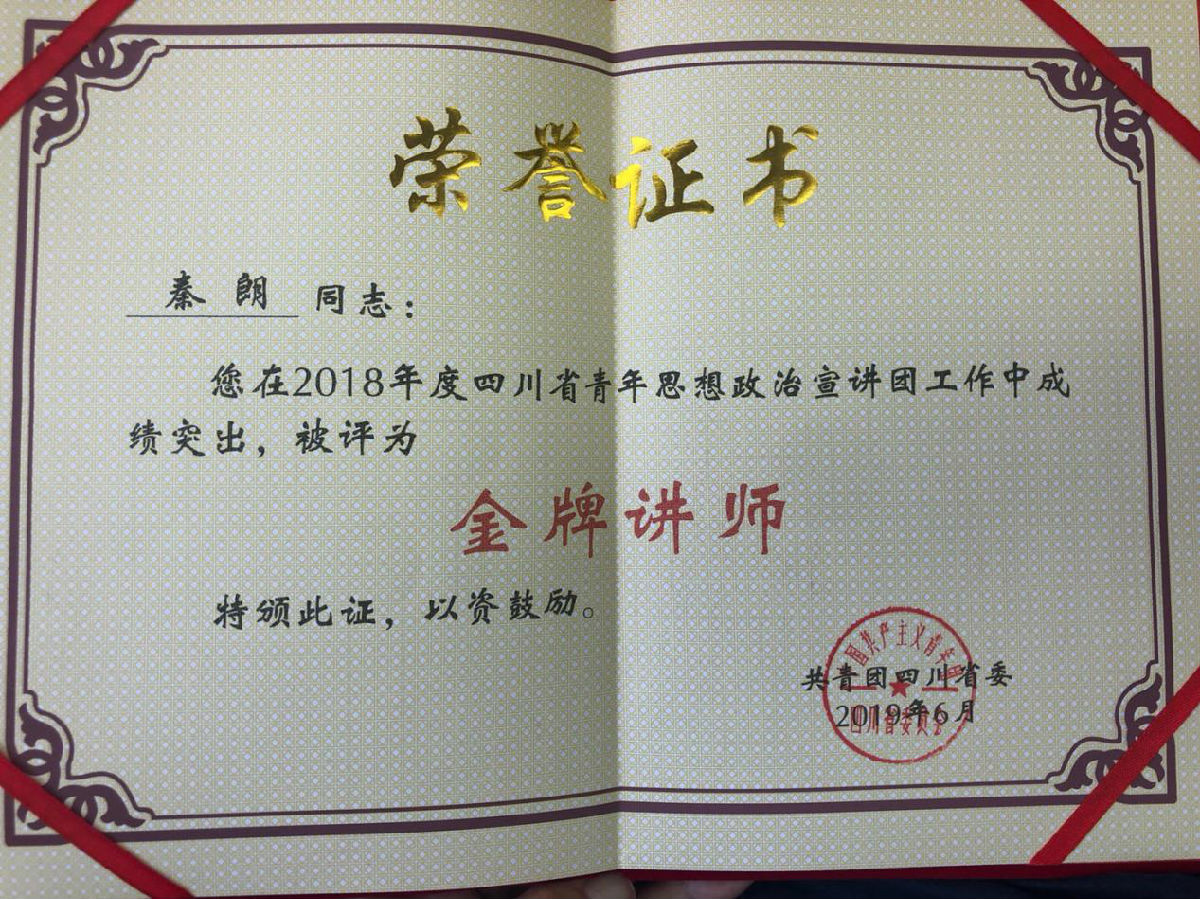 荣誉证书
秦朗 同志：
您在2018年度四川省青年思想政治宣讲团工作中成
绩突出，被评为
金牌讲师
特颁此证，以资鼓励。
共青团四川省委
2019年6月
中国共产主义青年团
四川省委员会